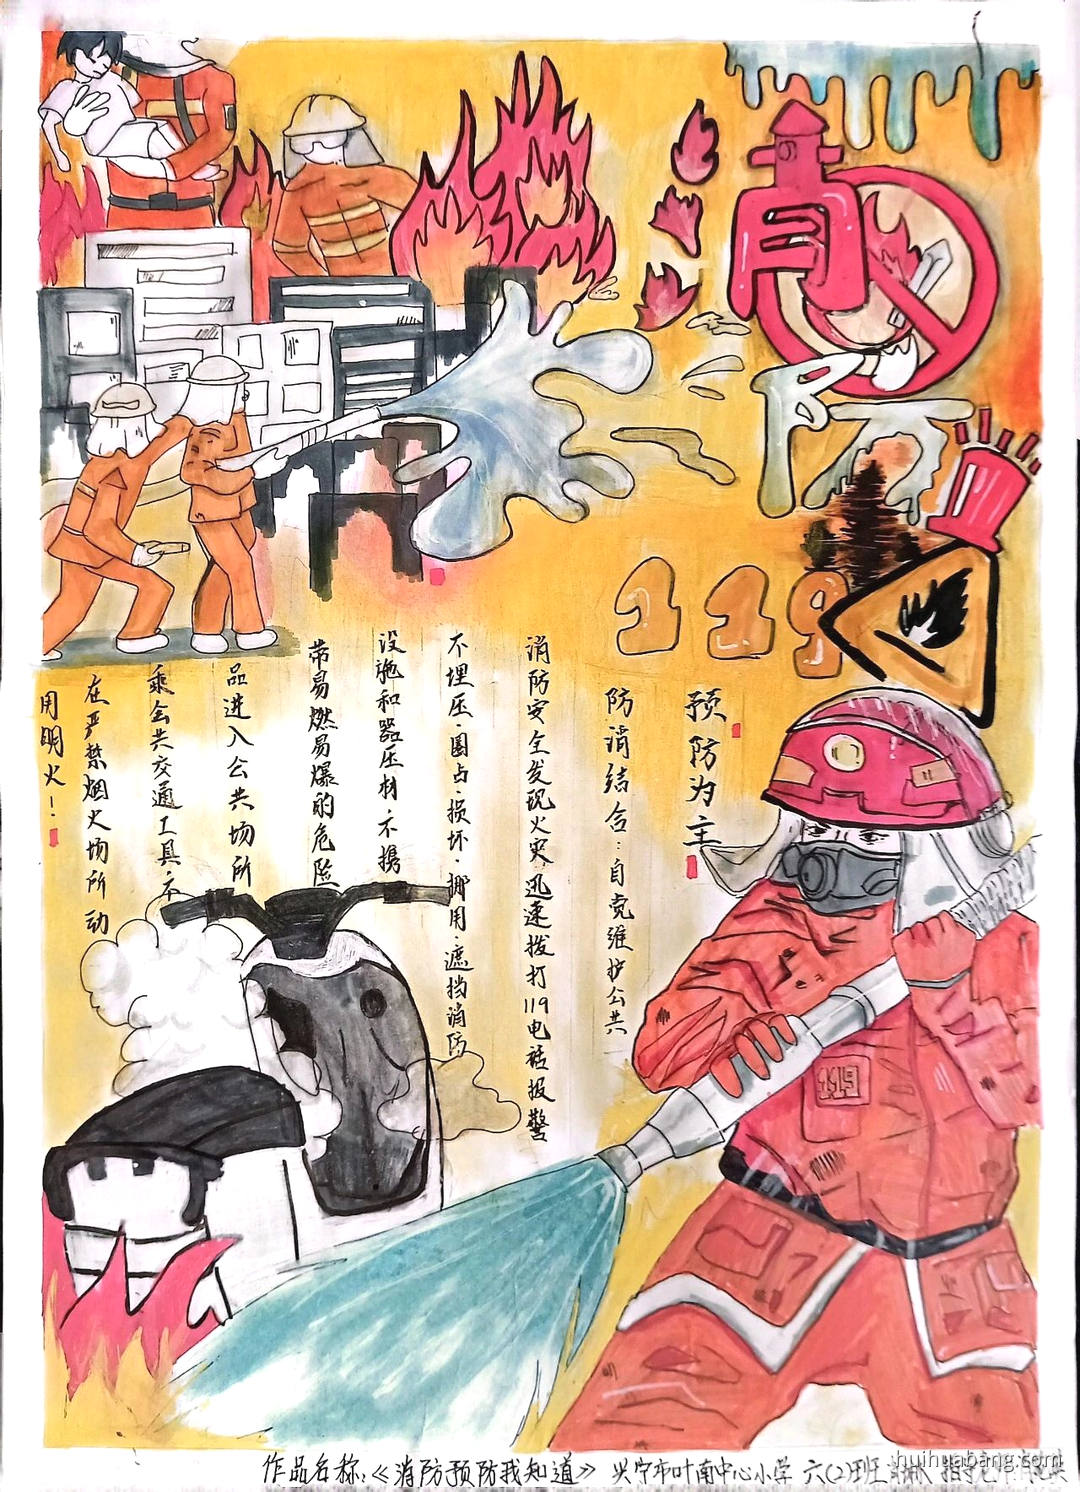 消防
119
预防为主
防消结合:自觉维护公共
消防安全发现火灾迅速拨打119电话报警
不埋压圈占·损坏·挪用·遮挡消防
设施和器压材·不携
带易燃易爆的危险
品进入公共场所
乘会共交通工具·不
在严禁烟火场所动
用明火!
119
作品名称:《消防预防我知道》 兴宁市叶南中心小学 六(2)班
huihuabang.com